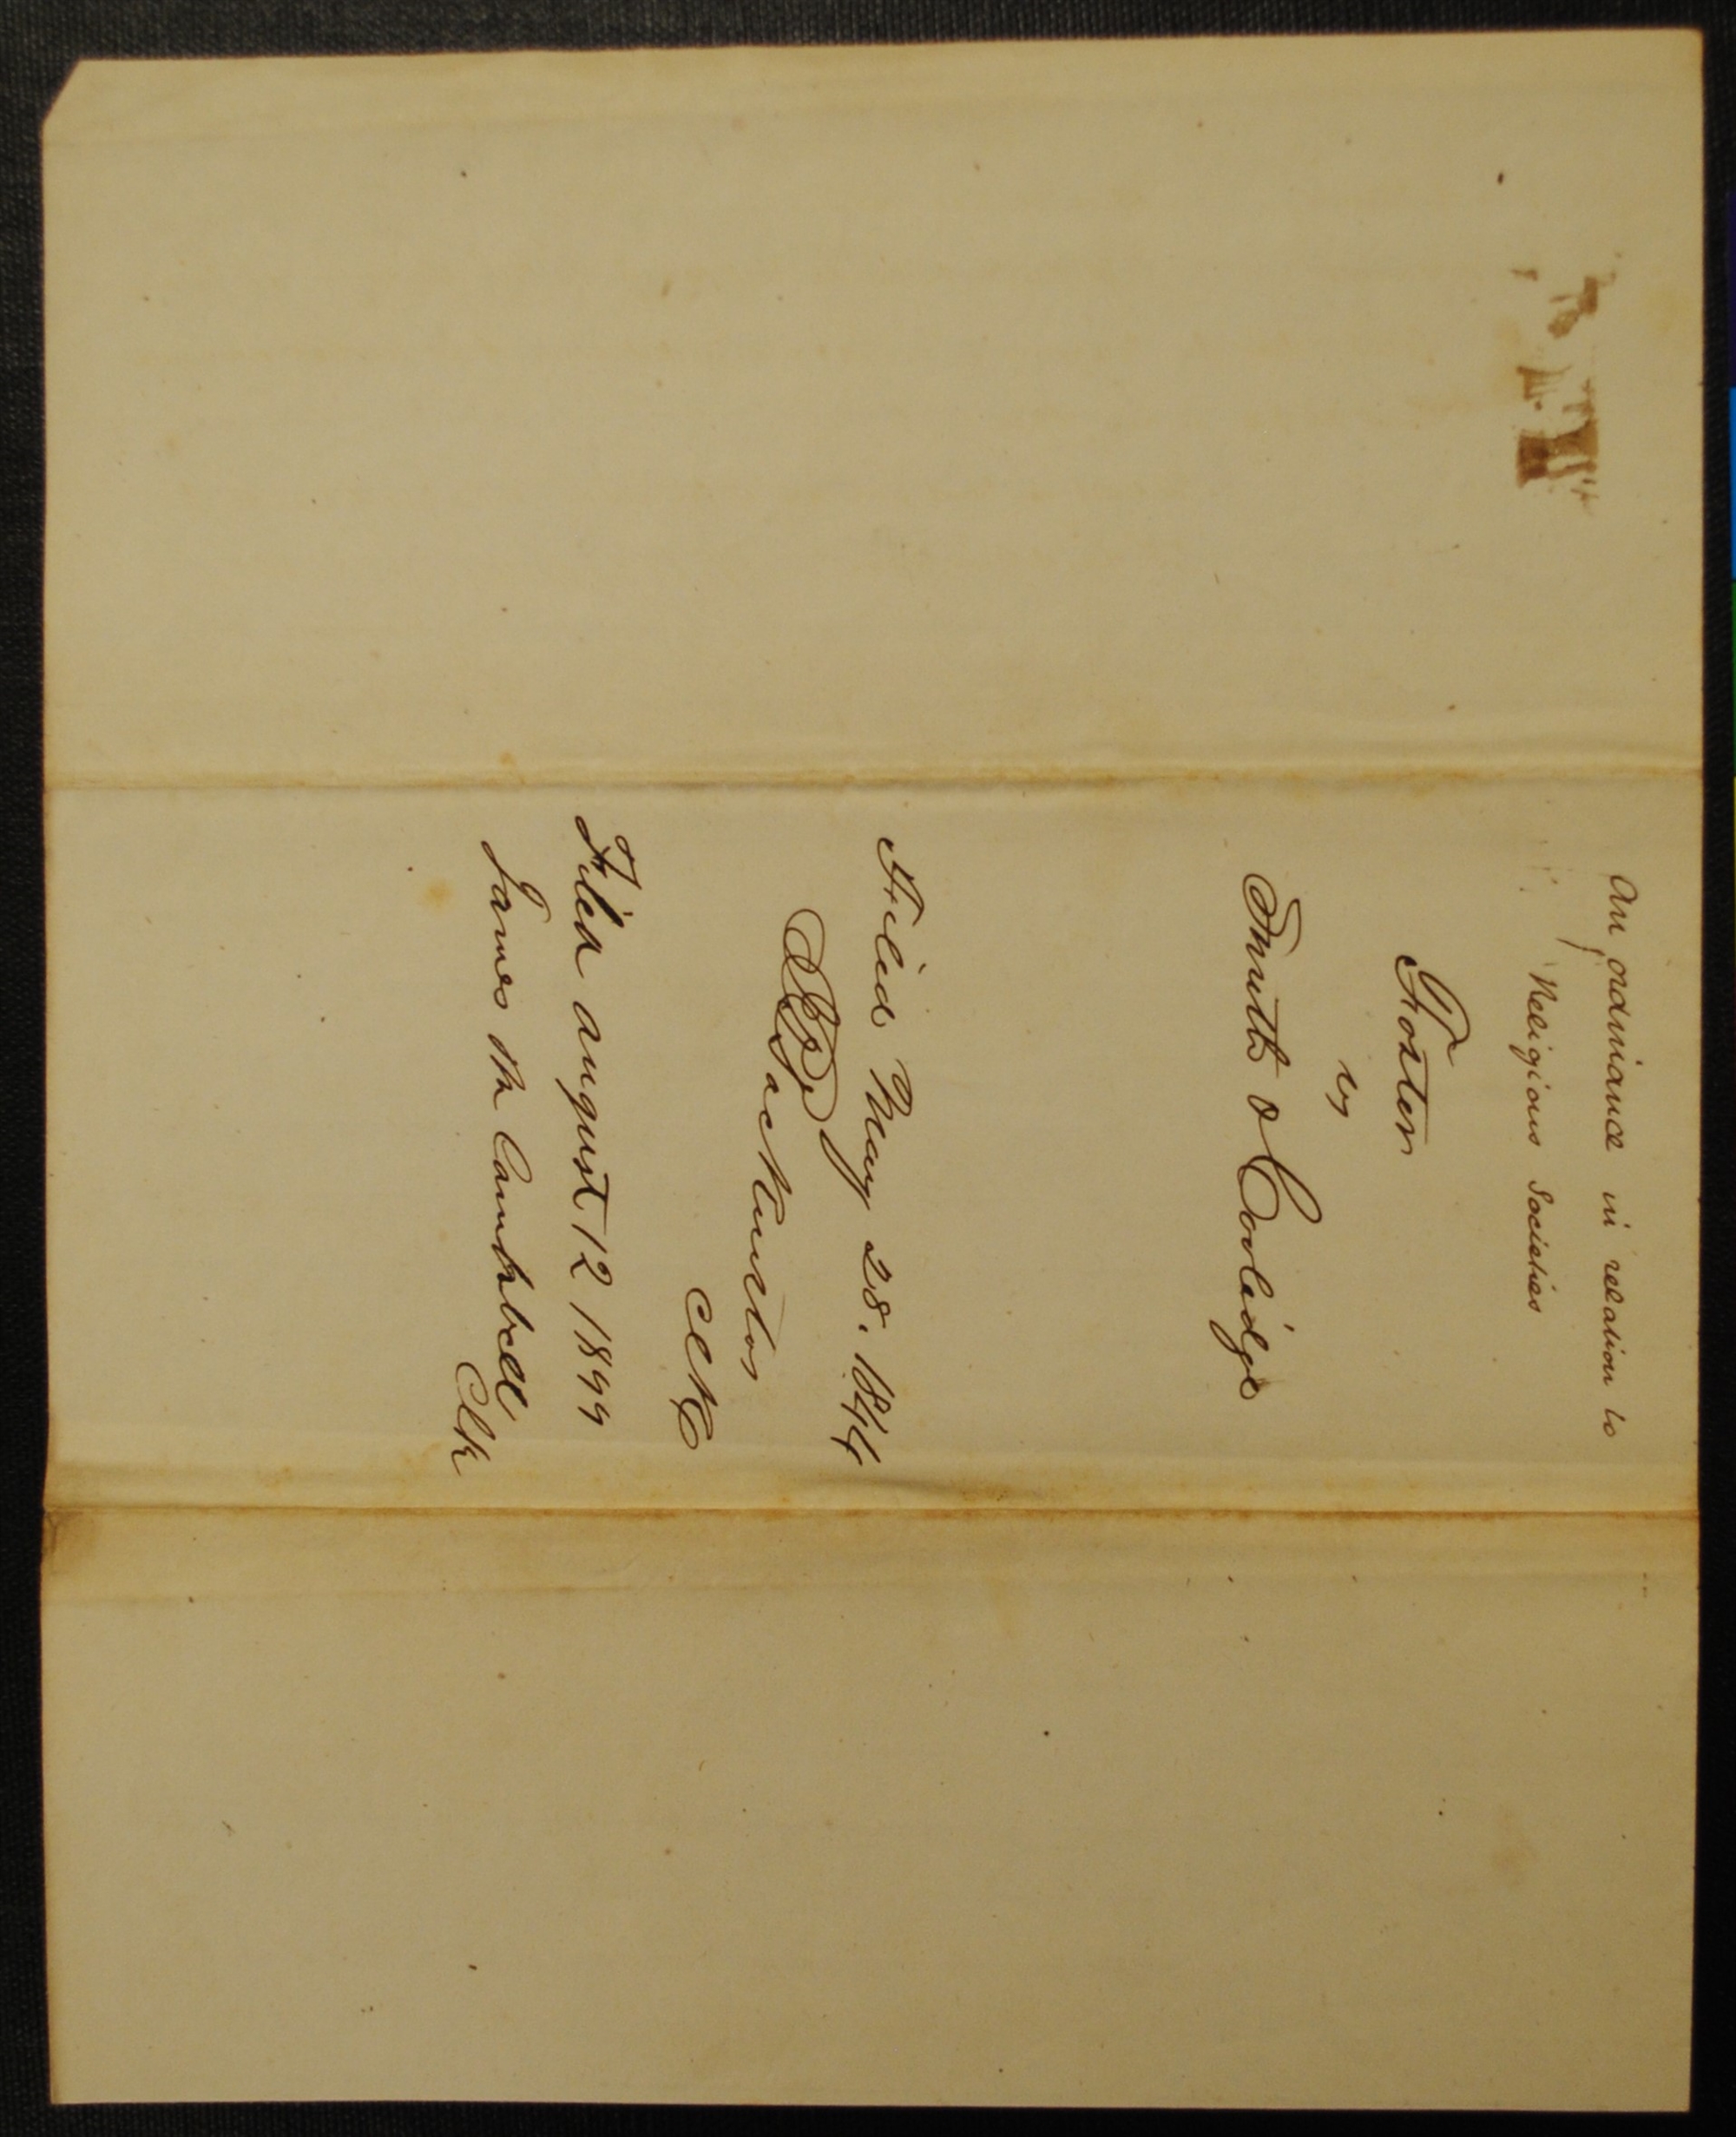 An ordinance in relation to
Religious Societies
Foster
vs
Smith & Coolidge
Filed May 28. 1844
J B Backenstos
Clk
Filed august 12 1844
James M Campbell
Clk